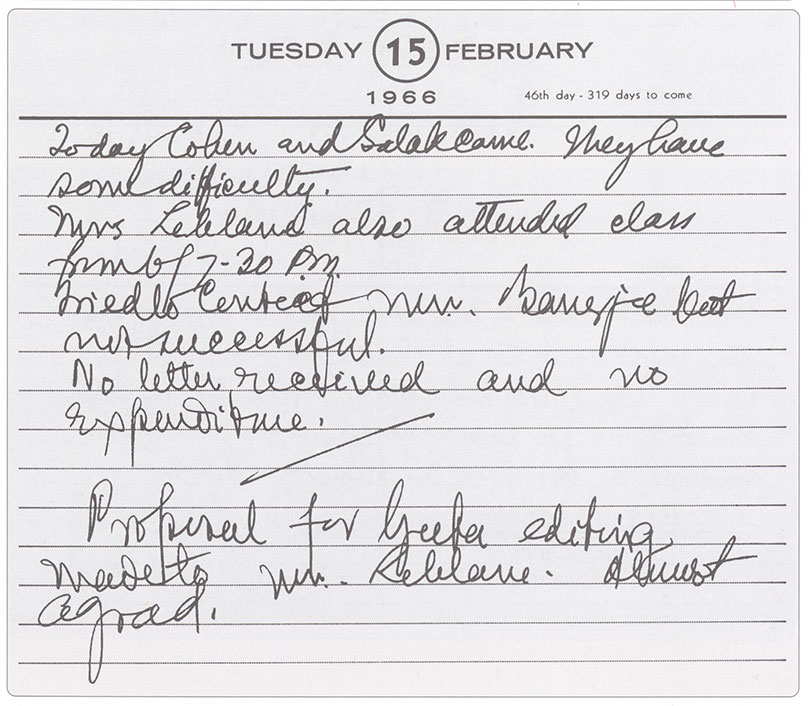 TUESDAY 15 FEBRUARY
1966 46th day - 319 days to come
Today Cohen and Salak came. They have
some difficulty.
Mrs Leblanc also attended class
from 6 / 7-30 P.M.
Tried to Contact Mr. Banerjee but
not successful.
No letter received and no
expenditure.
Proposal for Geeta editing
made to Mr. Leblanc. Almost
agread.